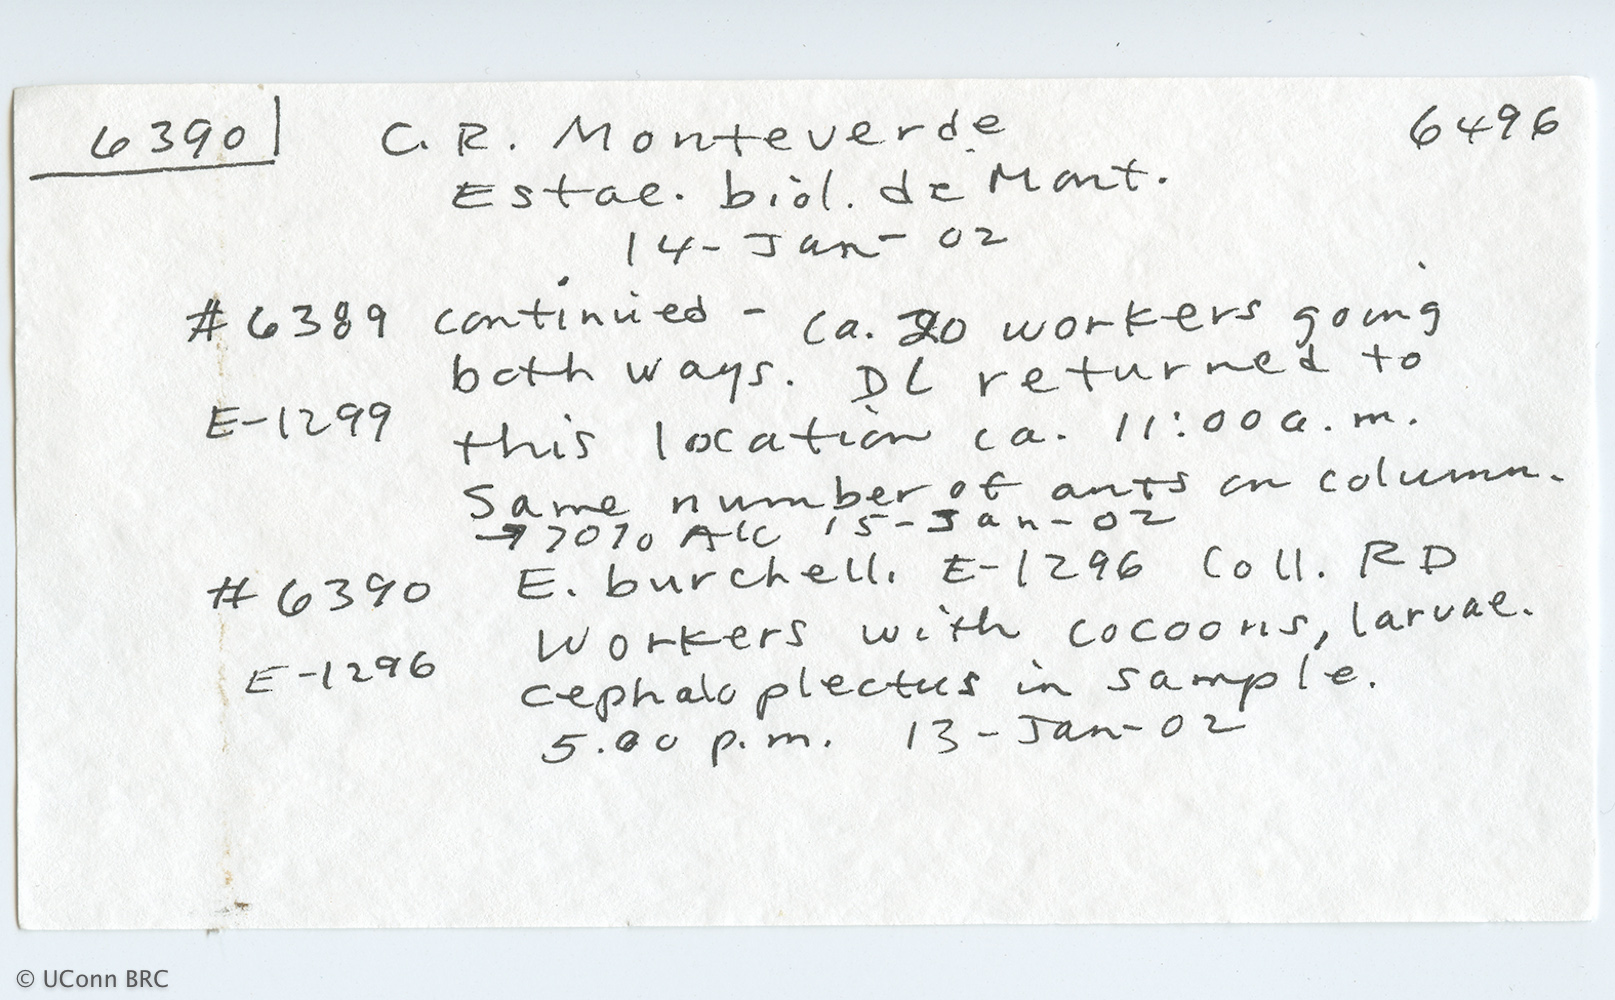 6390 C. R. Monteverde 6496
Estac. biol. de Mont.
14-Jan-02
#6389 continued - ca. 20 workers going
both ways. DL returned to
E-1299 this location ca. 11:00 a.m.
Same number of ants on column.
→ 70% Alc 15-Jan-02
#6390 E. burchell. E-1296 Coll. RD
Workers with cocoons, larvae.
E-1296 cephaloplectus in sample.
5.00 p.m. 13-Jan-02
© UConn BRC